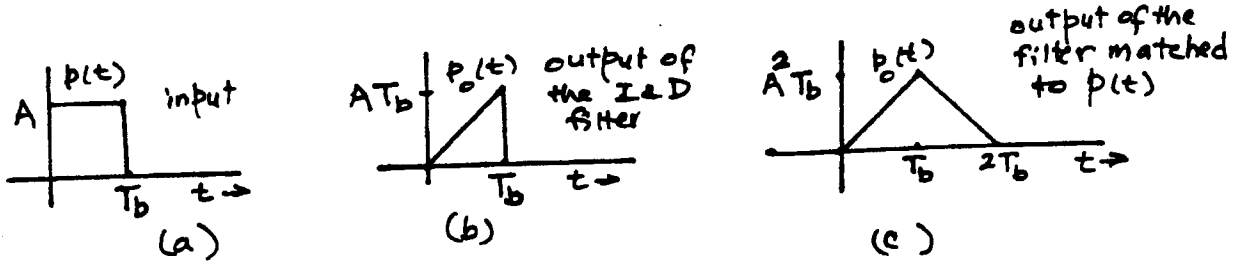 p(t)
A
input
T_b
t →
(a)
p_o(t)
output of
the I & D
filter
AT_b
T_b
t →
(b)
output of the
filter matched
to p(t)
p_o(t)
A²T_b
T_b
2T_b
t →
(c)